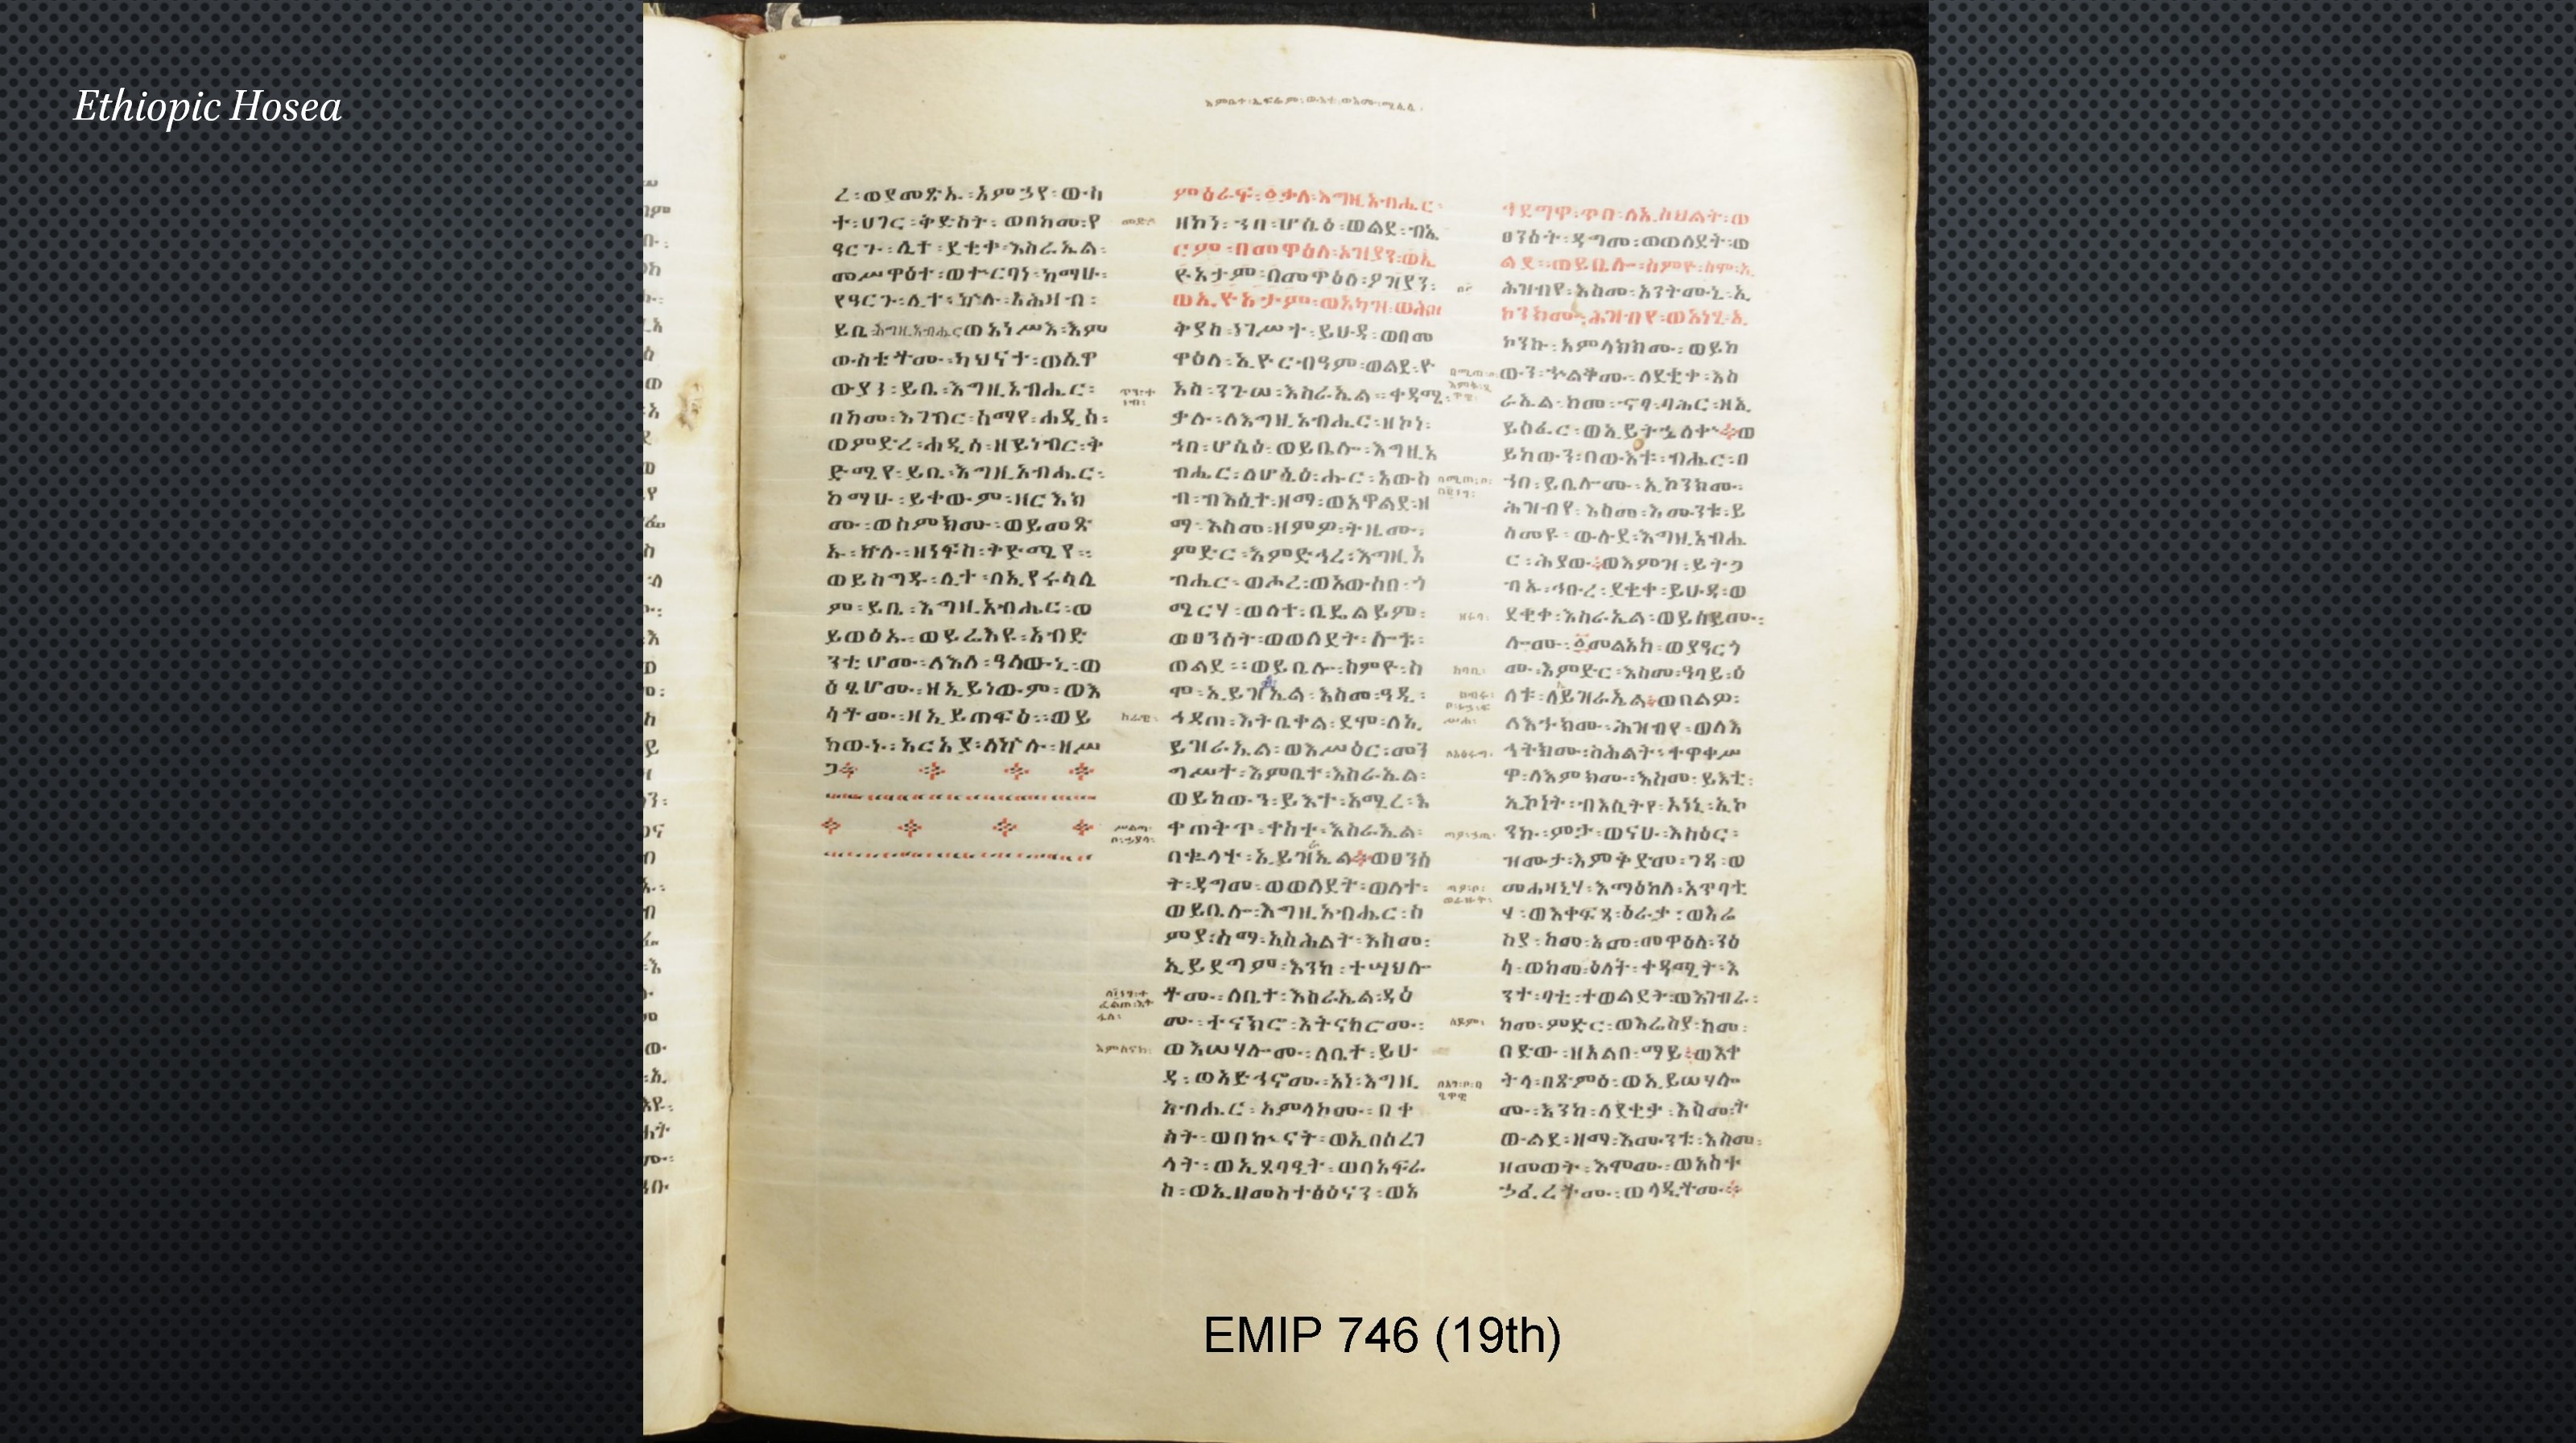 Ethiopic Hosea
ረ፡ወይመጽኡ፡እምኃየ፡ውስ
ተ፡ሀገር፡ቅድስት፡ወበከመ፡የ
ዓርጉ፡ሊተ፡ደቂቀ፡እስራኤል፡
መሥዋዕተ፡ወተርባነ፡ከማሁ፡
የዓርጉ፡ሊተ፡ኵሉ፡አሕዛብ፡
ይቤ፡እግዚአብሔር፡ወእነሥእ፡እም
ውስቴቶሙ፡ካህናተ፡ወሌዋ
ውያን፡ይቤ፡እግዚአብሔር፡
በከመ፡እገብር፡ሰማየ፡ሐዲስ፡
ወምድረ፡ሐዲሰ፡ዘይነብር፡ቅ
ድሜየ፡ይቤ፡እግዚአብሔር፡
ከማሁ፡ይቀውም፡ዘርእክ
ሙ፡ወስምክሙ፡ወይመጽ
እ፡ኵሉ፡ዘነፍስ፡ቅድሜየ፡፡
ወይሰግዱ፡ሊተ፡በኢየሩሳሌ
ም፡ይቤ፡እግዚአብሔር፡ወ
ይወፅኡ፡ወይሬእዩ፡አብድ
ንቲሆሙ፡ለእለ፡ዓለውኒ፡ወ
ዕፄሆሙ፡ዘኢይነውም፡ወእ
ሳቶሙ፡ዘኢይጠፍዕ፡፡ወይ
ከውኑ፡አርአያ፡ለኵሉ፡ዘሥ
ጋ፨
ምዕራፍ፡፩ቃለ፡እግዚአብሔር፡
ዘኮነ፡ኀበ፡ሆሴዕ፡ወልደ፡ብኤ
ርም፡በመዋዕለ፡አዝያን፡ወኢ
ዮአታም፡በመዋዕለ፡ዖዝያን፡
ወኢዮአታም፡ወአካዝ፡ወሕዝ
ቅያስ፡ነገሥተ፡ይሁዳ፡ወበመ
ዋዕለ፡ኢዮርብዓም፡ወልደ፡ዮ
አስ፡ንጉሠ፡እስራኤል፡፡ቀዳሚ፡
ቃሉ፡ለእግዚአብሔር፡ዘኮነ፡
ኀበ፡ሆሴዕ፡ወይቤሎ፡እግዚአ
ብሔር፡ለሆሴዕ፡ሑር፡አውስ
ብ፡ብእሲተ፡ዘማ፡ወአዋልደ፡ዘ
ማ፡እስመ፡ዘምዎ፡ትዜሙ፡
ምድር፡እምድኅረ፡እግዚአ
ብሔር፡ወሖረ፡ወአውሰበ፡ጎ
ሜርሃ፡ወለተ፡ቤዴልይም፡
ወፀንሰት፡ወወለደት፡ሎቱ፡
ወልደ፡፡ወይቤሎ፡ስምዮ፡ስ
ሞ፡ኢይዝኤል፡እስመ፡ዓዲ፡
ኅዳጠ፡እትቤቀል፡ደሞ፡ለኢ
ይዝራኤል፡ወእሥዕር፡መን
ግሥተ፡እምቤተ፡እስራኤል፡
ወይከውን፡ይእተ፡አሚረ፡እ
ቀጠቅጥ፡ቀስተ፡እስራኤል፡
በቈላተ፡ኢይዝኤል፨ወፀንሰ
ት፡ዳግመ፡ወወለደት፡ወለተ፡
ወይቤሎ፡እግዚአብሔር፡ስ
ምያ፡ስማ፡ኢስሕልት፡እስመ፡
ኢይደግም፡እንከ፡ተሣህሎ
ቶሙ፡ለቤተ፡እስራኤል፡ዳዕ
ሙ፡ተናክሮ፡እትናከሮሙ፡
ወእሠሃሎሙ፡ለቤተ፡ይሁ
ዳ፡ወአድኅኖሙ፡አነ፡እግዚ
አብሔር፡አምላኮሙ፡በቀ
ስት፡ወበኲናት፡ወኢበሰረገ
ላት፡ወኢጸባዒት፡ወበአፍራ
ስ፡ወኢዘመስተፅዕናን፡ወአ
ኀደማዋ፡ጥበ፡ለኢስህልት፡ወ
ፀንሰት፡ዳግመ፡ወወለደት፡ወ
ልደ፡፡ወይቤሎ፡ስምዮ፡ስሞ፡ኢ
ሕዝብየ፡እስመ፡አንትሙኒ፡ኢ
ኮንክሙ፡ሕዝብየ፡ወአነሂ፡ኢ
ኮንኩ፡አምላክክሙ፡ወይከ
ውን፡ኍልቆሙ፡ለደቂቀ፡እስ
ራኤል፡ከመ፡ኖፃ፡ባሕር፡ዘኢ
ይሰፈር፡ወኢይትኌለቍ፨ወ
ይከውን፡በውእቱ፡ብሔር፡በ
ኀበ፡ይቤሎሙ፡ኢኮንክሙ፡
ሕዝብየ፡እስመ፡እሙንቱ፡ይ
ሰመዩ፡ውሉደ፡እግዚአብሔ
ር፡ሕያው፨ወእምዝ፡ይትጋ
ብኡ፡ኅቡረ፡ደቂቀ፡ይሁዳ፡ወ
ደቂቀ፡እስራኤል፡ወይሰይሙ፡
ሎሙ፡፩መልአከ፡ወያዓርጎ
ሙ፡እምድር፡እስመ፡ዓባይ፡ዕ
ለቱ፡ለይዝራኤል፨ወበልዎ፡
ለእኁክሙ፡ሕዝብየ፡ወለእ
ኅትክሙ፡ስሕልት፡ተዋቀሥ
ዋ፡ለእምክሙ፡እስመ፡ይእቲ፡
ኢኮነት፡ብእሲትየ፡አነኒ፡ኢኮ
ንኩ፡ምታ፡ወናሁ፡እስዕር፡
ዝሙታ፡እምቅድመ፡ገጻ፡ወ
መሐዛኒሃ፡እማዕከለ፡አጥባቲ
ሃ፡ወእቀፍጻ፡ዕራቃ፡ወእሬ
ስያ፡ከመ፡አመ፡መዋዕለ፡ንዕ
ሳ፡ወከመ፡ዕለት፡ቀዳሚት፡እ
ንተ፡ባቲ፡ተወልደት፡ወእገብራ፡
ከመ፡ምድር፡ወእሬስያ፡ከመ፡
በድው፡ዘአልቦ፡ማይ፨ወእቀ
ትላ፡በጽምዕ፡ወኢይሠሃሎ
ሙ፡እንከ፡ለደቂቃ፡እስመ፡ት
ውልደ፡ዘማ፡እሙንቱ፡እስመ፡
ዘመወት፡እሞሙ፡ወአስተ
ኃፈረቶሙ፡ወላዲቶሙ፨
EMIP 746 (19th)